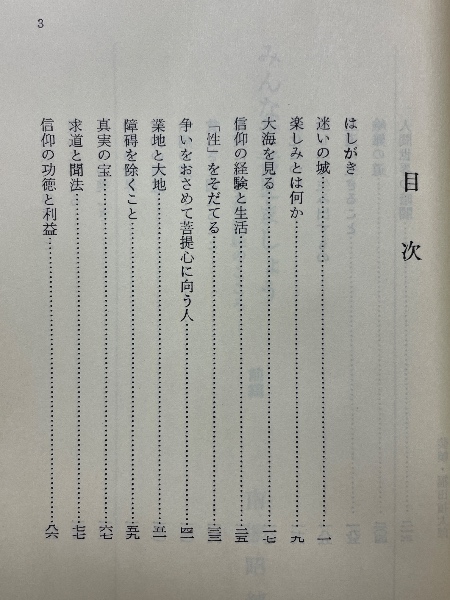 3
目次
はしがき
迷いの城……一
楽しみとは何か……九
大海を見る……一七
信仰の経験と生活……二五
「性」をそだてる……三三
争いをおさめて菩提心に向う人……四二
業地と大地……五一
障碍を除くこと……五九
真実の宝……六七
求道と聞法……七七
信仰の功徳と利益……八六